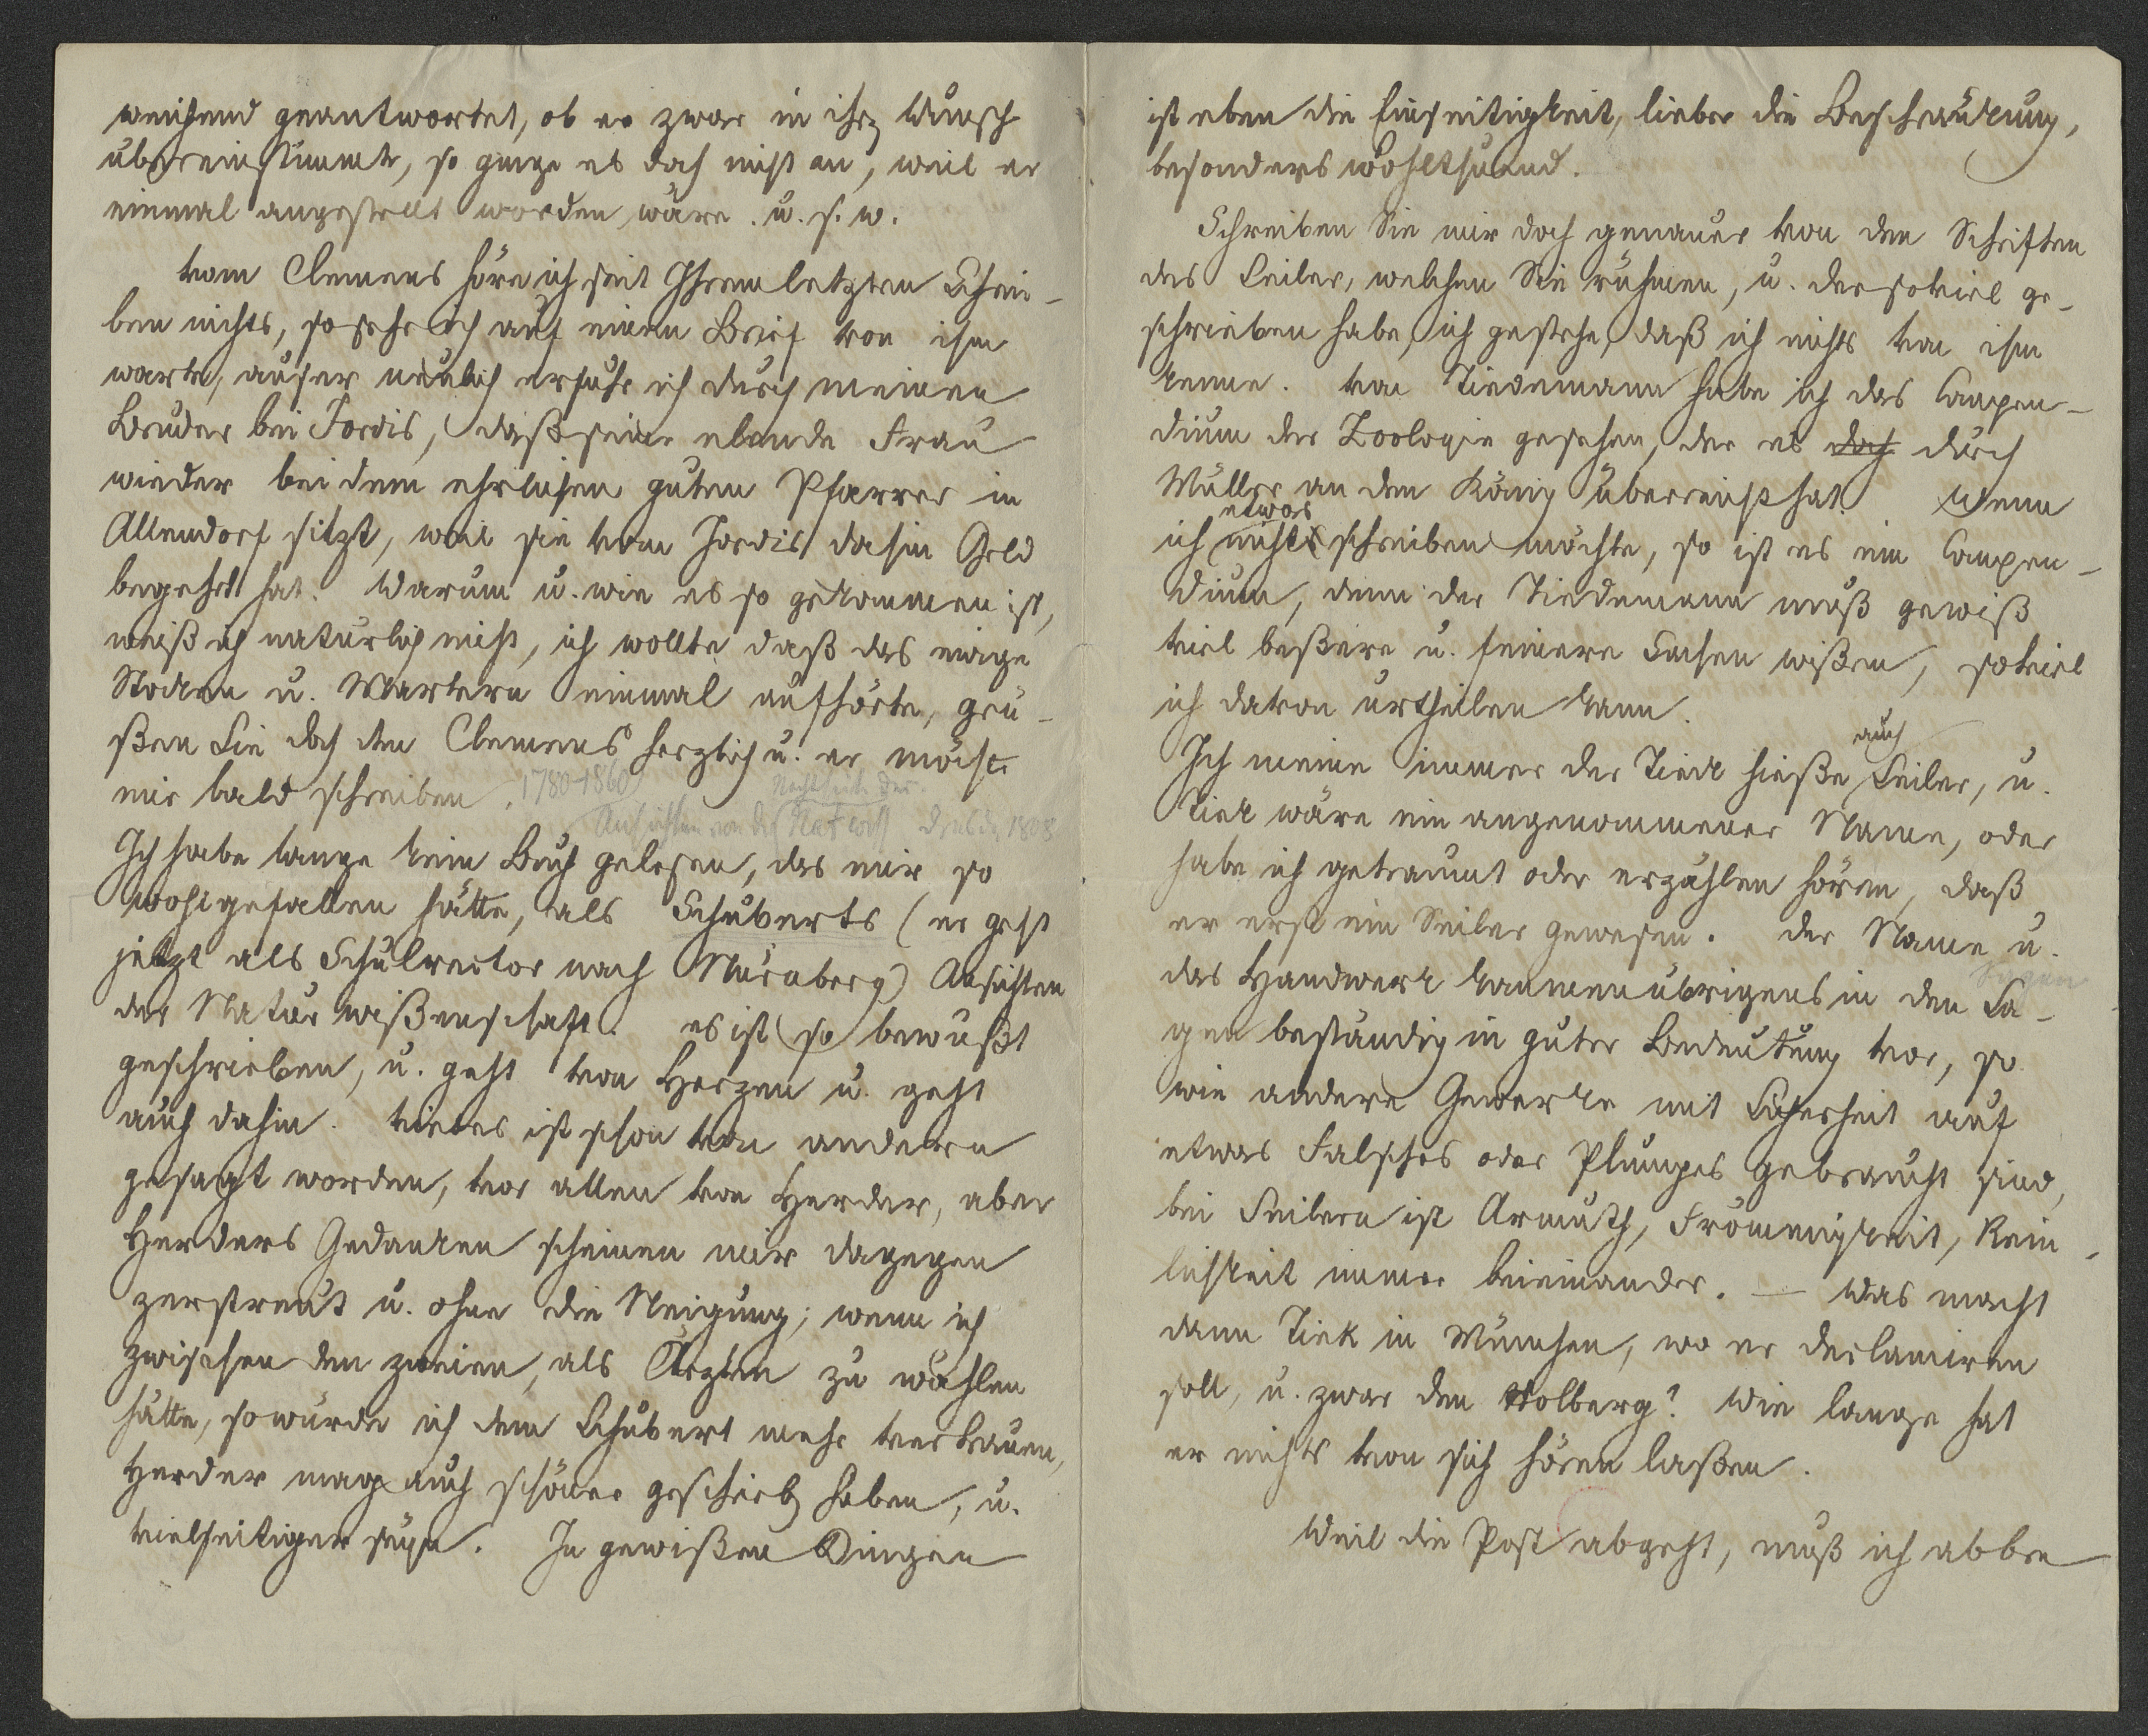 weichend geantwortet, ob er zwar in ihrz Wunsch
übereinstimmte, so ginge es doch nicht an, weil er
einmal angestellt worden wäre. u. s. w.
vom Clemens höre ich seit Ihrem letzten Schrei-
ben nichts, so sehr ich auf einen Brief von ihm
warte, außer neulich erfuhr ich durch meinen
Bruder bei Jordis, daß seine elende Frau
wieder bei dem ehrlichen guten Pfarrer in
Allendorf sitzt, weil sie vom Jordis dahin Geld
begehrt hat. Warum u. wie es so gekommen ist,
weiß ich natürlich nicht, ich wollte daß das ewige
Stocken u. Martern einmal aufhörte, grü-
ßen Sie doch den Clemens herzlich u. er möchte
mir bald schreiben. 1780-1860
Nachtseite der
Ansichten von der Naturwiss Dresden 1808
Ich habe lange kein Buch gelesen, das mir so
wohlgefallen hätte, als Schuberts (er geht
jetzt als Schulrector nach Nürnberg) Ansichten
der Naturwißenschaft. es ist so bewußt
geschrieben, u. geht von Herzen u. geht
auch dahin. vieles ist schon von andern
gesagt worden, vor allen von Herder, aber
Herders Gedanken scheinen mir dagegen
zerstreut u. ohne die Neigung; wenn ich
zwischen den zweien, als Ärzten zu wählen
hätte, so würde ich dem Schubert mehr vertrauen,
Herder mag auch schöner geschriebz haben, u.
vielseitiger seyn. In gewißen Dingen
ist eben die Einseitigkeit, lieber die Beschränkung,
besonders wohlthuend.
Schreiben Sie mir doch genauer von den Schriften
des Seiler, welchen Sie rühmen, u. der soviel ge-
schrieben habe, ich gestehe, daß ich nichts von ihm
kenne. von Tiedemann habe ich das Compen-
dium der Zoologie gesehen, der es doch durch
Müller an den König überreicht hat. Wenn
etwas
ich nichts schreiben möchte, so ist es ein Compen-
dium, denn der Tiedemann muß gewiß
viel beßere u. feinere Sachen wißen, soviel
ich davon urtheilen kann.
auch
Ich meine immer der Tieck hieße Seiler, u.
Tieck wäre ein angenommener Name, oder
habe ich geträumt oder erzählen hören, daß
er erst ein Seiler gewesen. der Name u.
das Handwerk kommen übrigens in den Sa-
gen beständig in guter Bedeutung vor, so
wie andere Gewerke mit Sicherheit auf
etwas Falsches oder Plumpes gebraucht sind,
bei Seilern ist Armuth, Frömmigkeit, Rein-
lichkeit immer beieinander. — Was macht
denn Tiek in München, wo er declamiren
soll, u. zwar den Holberg? Wie lange hat
er nichts von sich hören laßen.
Weil die Post abgeht, muß ich abbre